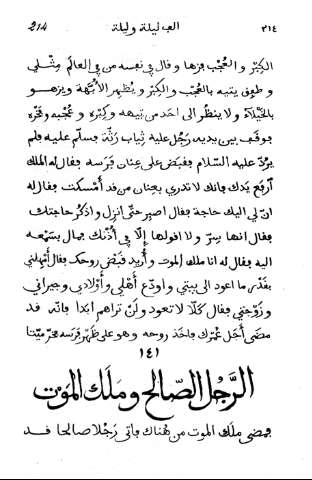 ٣١٤ الف ليلة وليلة 214
الكِبْر والعُجْب فزها وقال في نفسه من في العالم مثلي
وطفق يتيه بالعُجْب والكِبْر ويُظهر الأبّهة ويزهو
بالخُيَلاَء ولا ينظر الى احد من تيهه وكِبْره وعُجبه وفخره
فوقف بين يديه رَجُل عليه ثياب رَثّة فسلّم عليه فلم
يردّ عليه السلام فقبض على عنان فرسه فقال له الملك
أرفع يدك فانك لا تدري بعنان من قد أمسكت فقال له
ان لي اليك حاجة فقال اصبر حتى انزل واذكر حاجتك
فقال انها سِرّ ولا اقولها إلّا في أُذنك فمال بسَمْعه
اليه فقال له انا ملك الموت وأُريد قبض روحك فقال أمهلني
بقدر ما اعود الى بيتي واودّع أهلي وأولادي وجيراني
وزوجتي فقال كَلّا لا تعود ولن تراهم ابدا فانّه قد
مضى أجل عُمرك فاخذ روحه وهو على ظهر فرسه فخرّ ميّتا
١٤١
الرَّجُل الصّالح وملك الموت
فمضى ملك الموت من هُناك فاتى رَجُلا صالحا قد